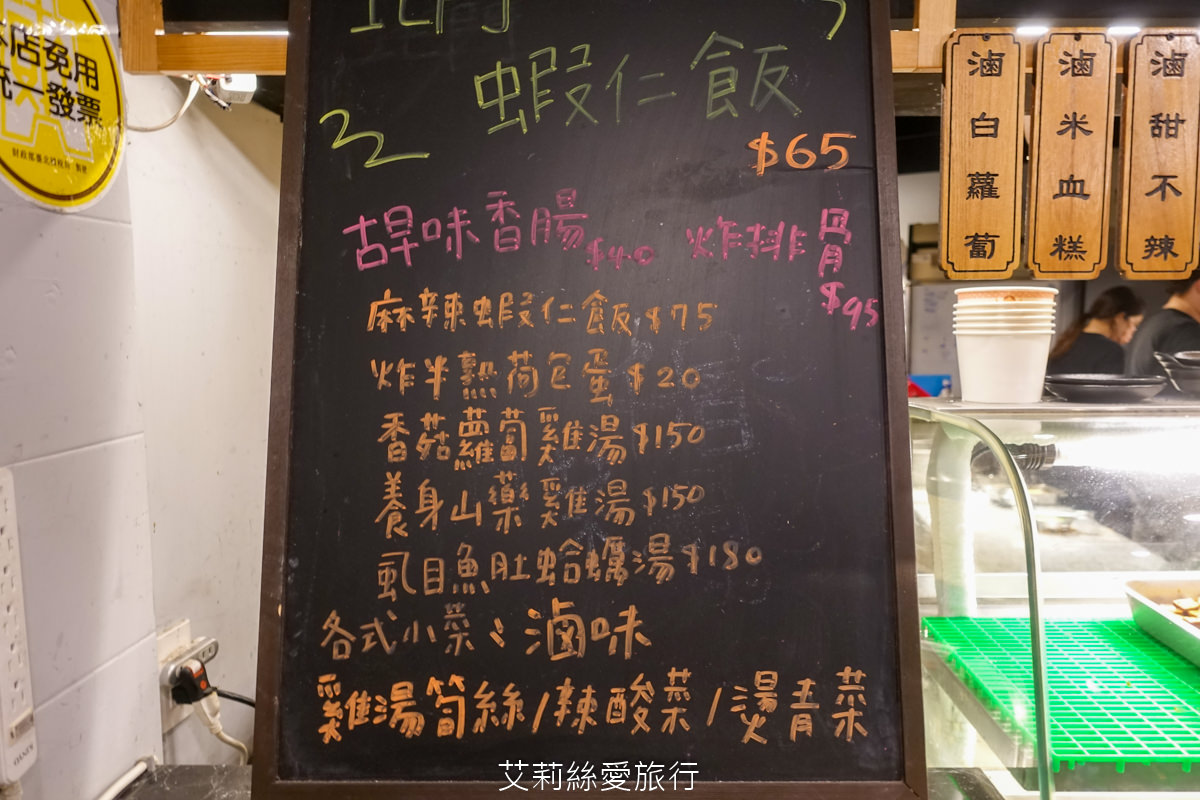 本店免用
統一發票
財政部臺北國稅局 製發
北門
蝦仁飯
$65
古早味香腸 $40 炸排骨 $95
麻辣蝦仁飯 $75
炸半熟荷包蛋 $20
香菇蘿蔔雞湯 $150
養身山藥雞湯 $150
虱目魚肚蛤蠣湯 $180
各式小菜：滷味
雞湯筍絲/辣酸菜/燙青菜
滷白蘿蔔
滷米血糕
滷甜不辣
艾莉絲愛旅行